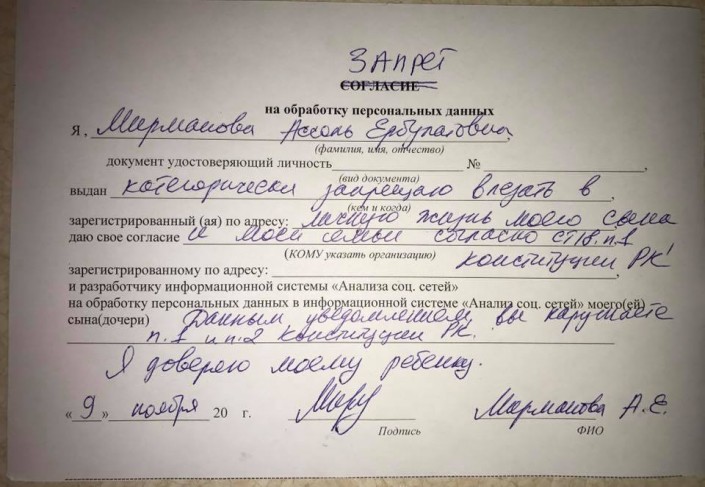 ЗАПРЕТ
СОГЛАСИЕ
на обработку персональных данных
Я , Мирманова Ассоль Ербулатовна,
(фамилия, имя, отчество)
документ удостоверяющий личность № ,
(вид документа)
выдан категорически запрещаю влезать в ,
(кем и когда)
зарегистрированный (ая) по адресу: личную жизнь моего сына
даю свое согласие и моей семьи согласно ст18.п.1
(КОМУ указать организацию) конституции РК!
зарегистрированному по адресу: ,
и разработчику информационной системы «Анализа соц. сетей»
на обработку персональных данных в информационной системе «Анализ соц. сетей» моего(ей)
сына(дочери) Данным уведомлением вы нарушаете
п.1 и п.2 конституции РК.
Я доверяю моему ребенку.
«9» ноября 20 г. Мирманова А.Е.
Подпись ФИО